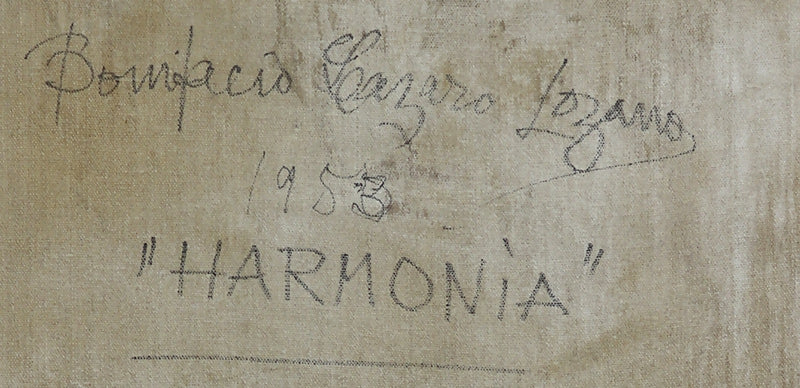 Bonifacio Lazaro Lozano
1953
"HARMONiA"